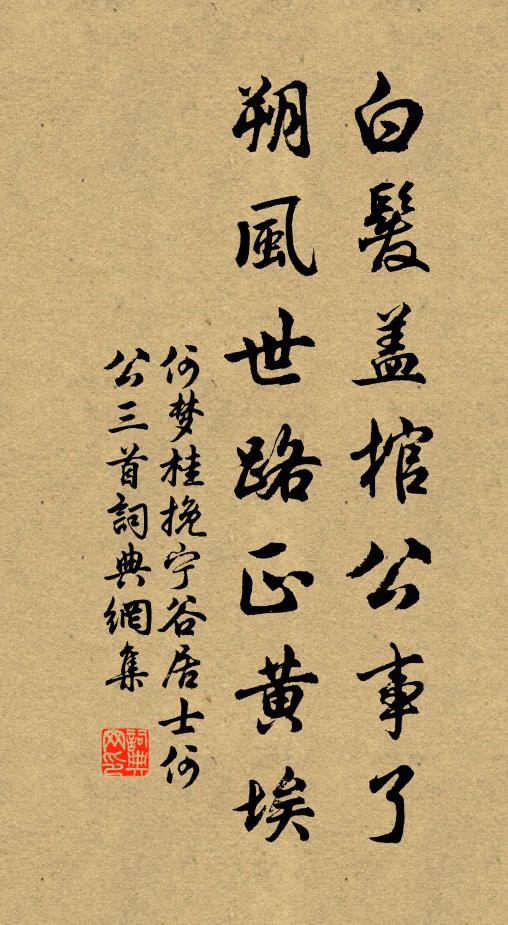 白髮盖棺公事了
朔風世路正黄埃
何梦桂挽宁谷居士何
公三首詞典網集
詞典
网印